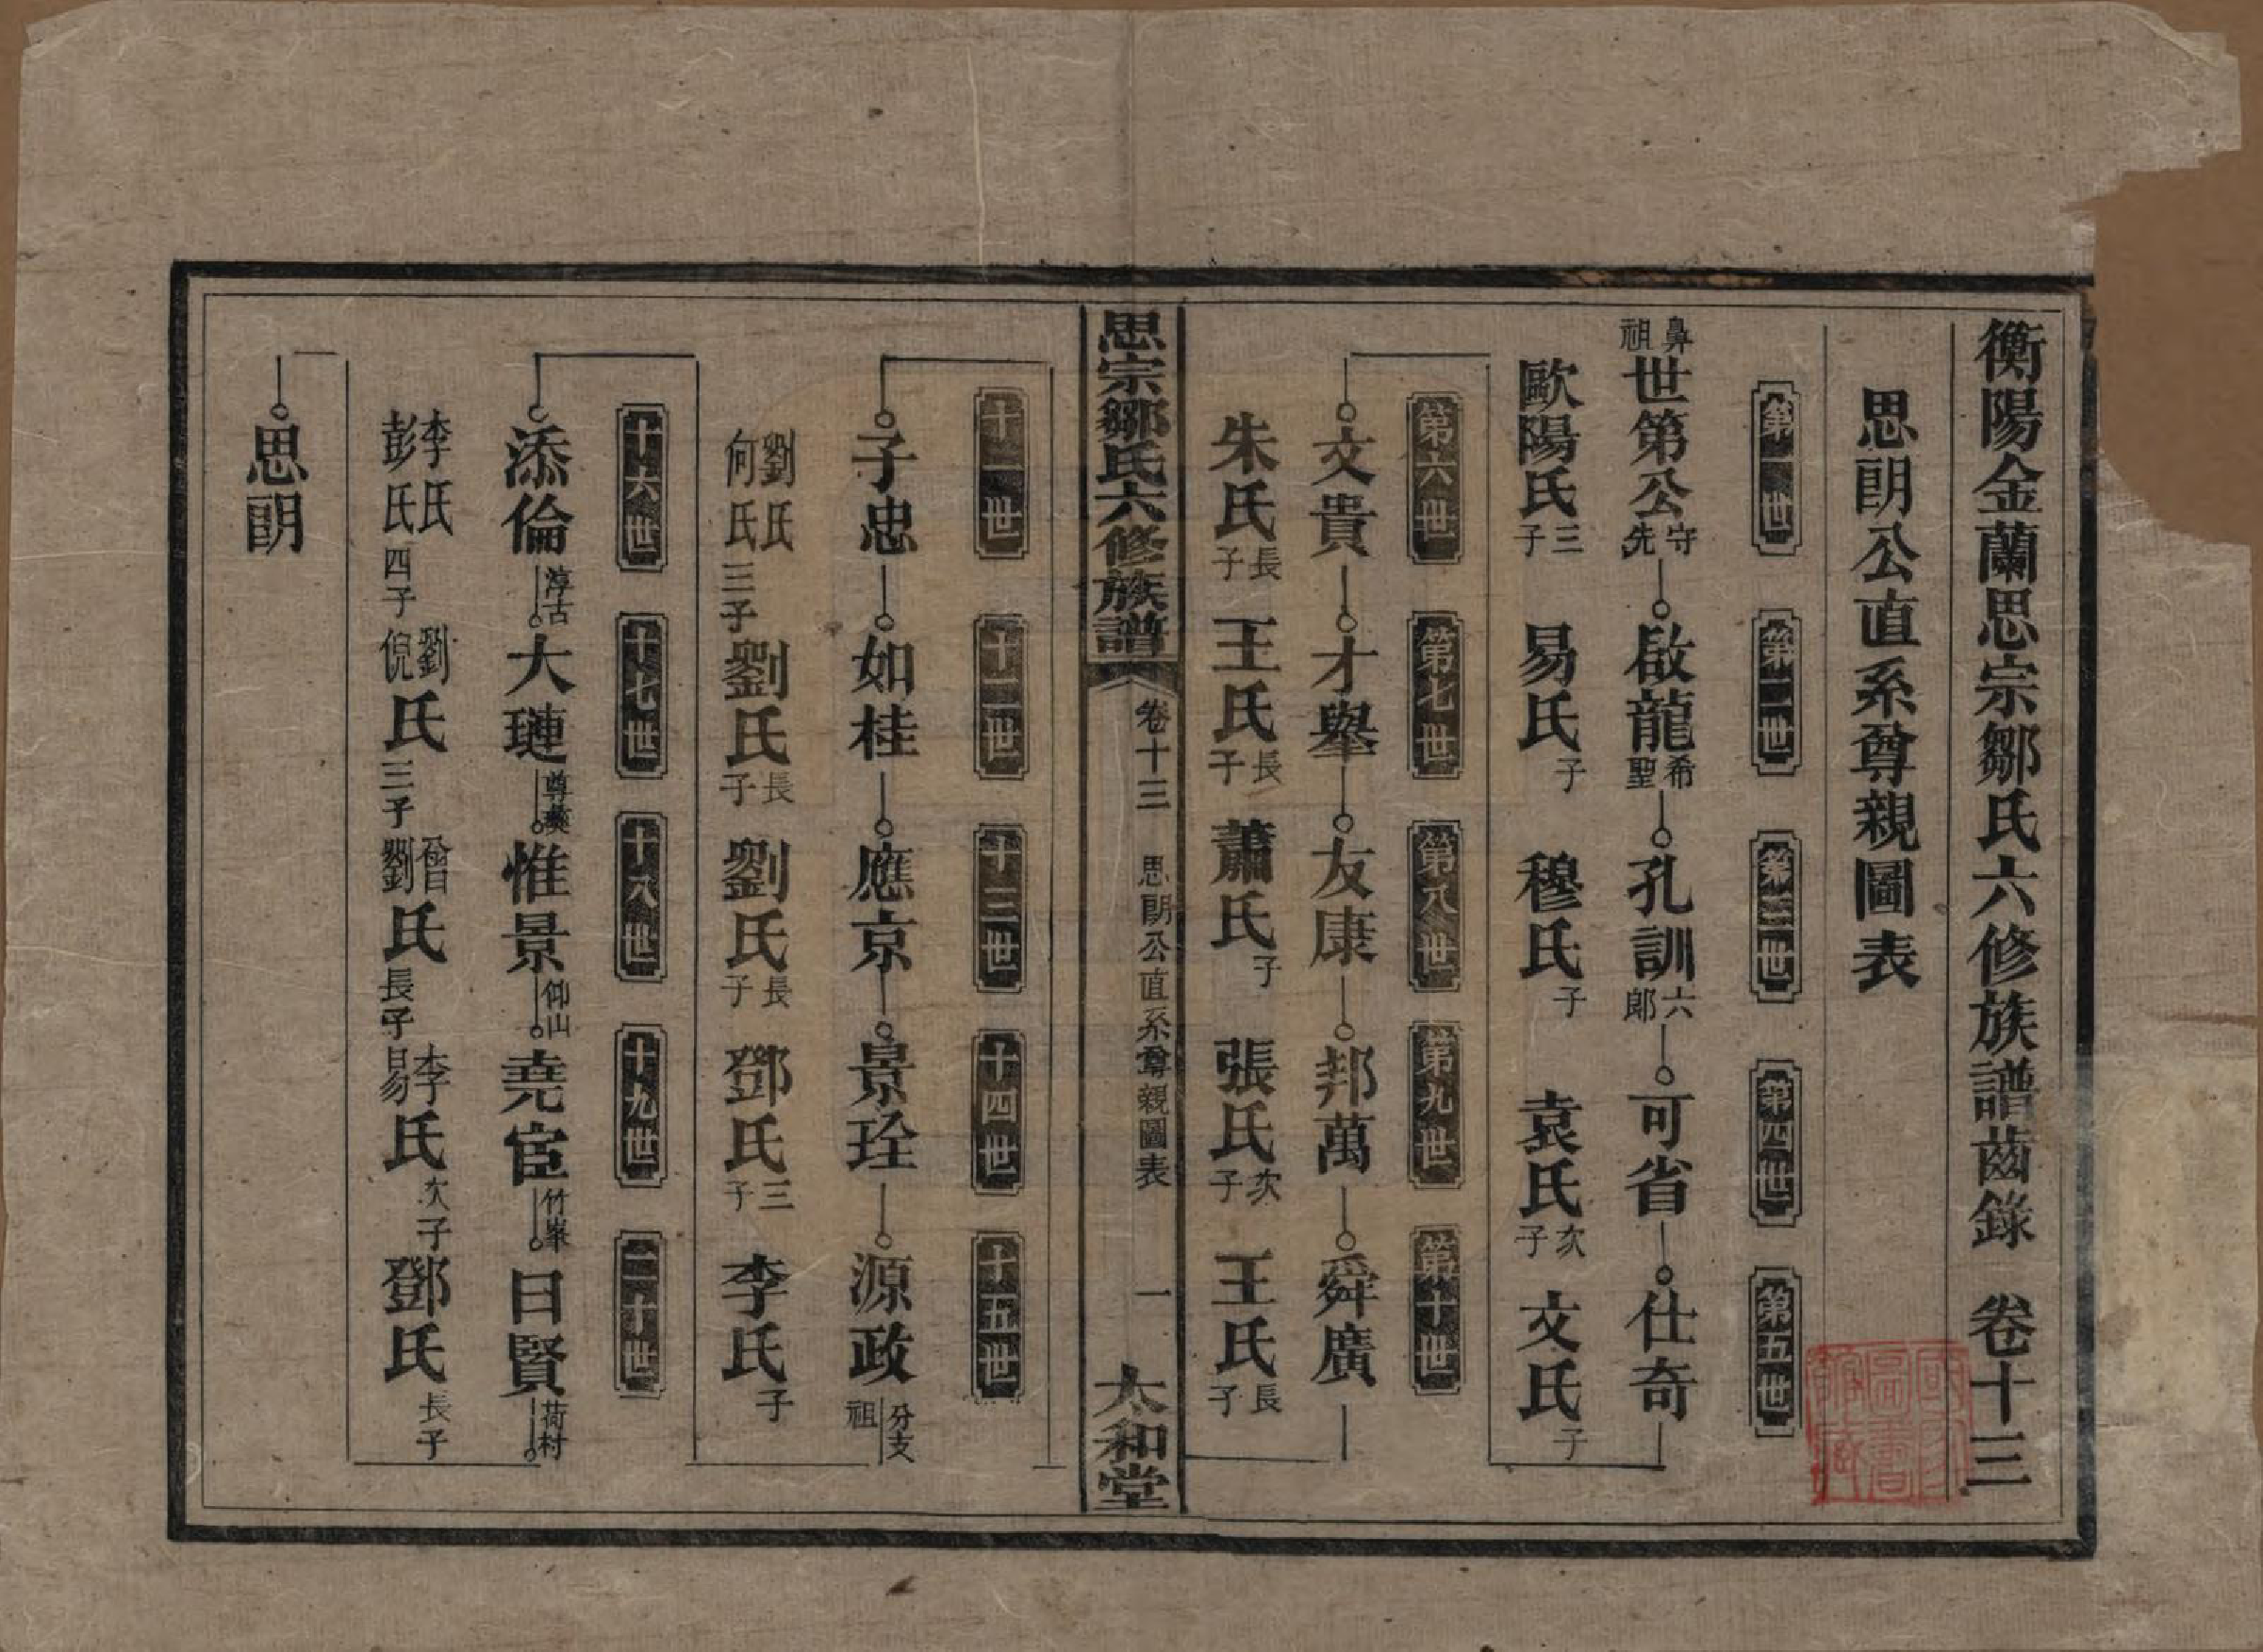 衡陽金蘭思宗鄒氏六修族譜齒錄 卷十三
思明公直系尊親圖表
第一世 第二世 第三世 第四世 第五世
鼻祖 世第公 守先 啟龍 希聖 孔訓 六郎 可省 仕奇
歐陽氏 三子 易氏 子 穆氏 子 袁氏 次子 文氏 子
第六世 第七世 第八世 第九世 第十世
文貴 才舉 友康 邦萬 舜廣
朱氏 長子 王氏 長子 蕭氏 子 張氏 次子 王氏 長子
思宗鄒氏六修族譜 卷十三 思明公直系尊親圖表 一 太和堂
十一世 十二世 十三世 十四世 十五世
子忠 如桂 應京 景珄 源政 分支祖
劉氏 何氏 三子 劉氏 長子 劉氏 長子 鄧氏 三子 李氏 子
十六世 十七世 十八世 十九世 二十世
添倫 淳古 大璉 尊彝 惟景 仰山 堯宦 竹峯 日賢 荷村
李氏 彭氏 四子 劉倪氏 三子 曾劉氏 長子 李易氏 次子 鄧氏 長子
思明